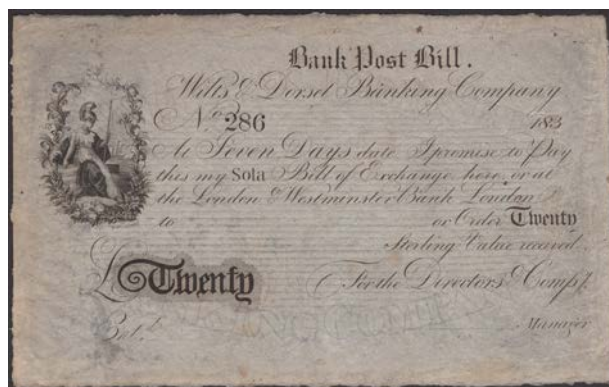 Bank Post Bill.
Wilts & Dorset Banking Company
No. 286 183
At Seven Days date I promise to Pay
this my Sola Bill of Exchange here, or at
the London & Westminster Bank London
to or Order Twenty
Sterling Value received.
£ Twenty For the Directors & Compy.
Entd.
Manager